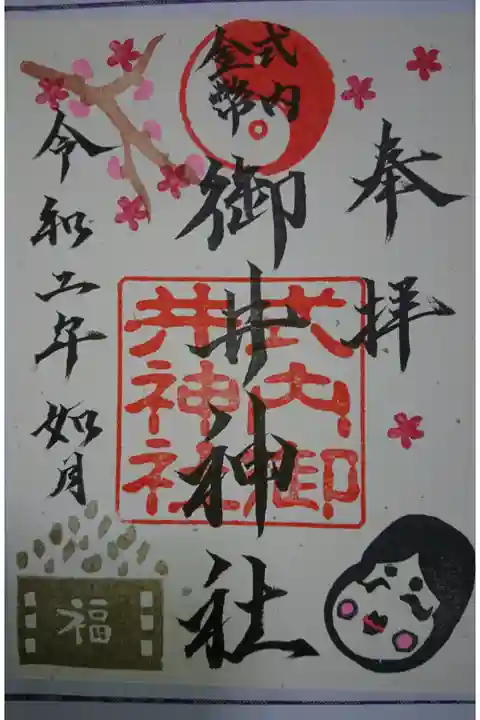 奉拝
式内
金幣
御井神社
式内御
井神社
令和二年如月
福